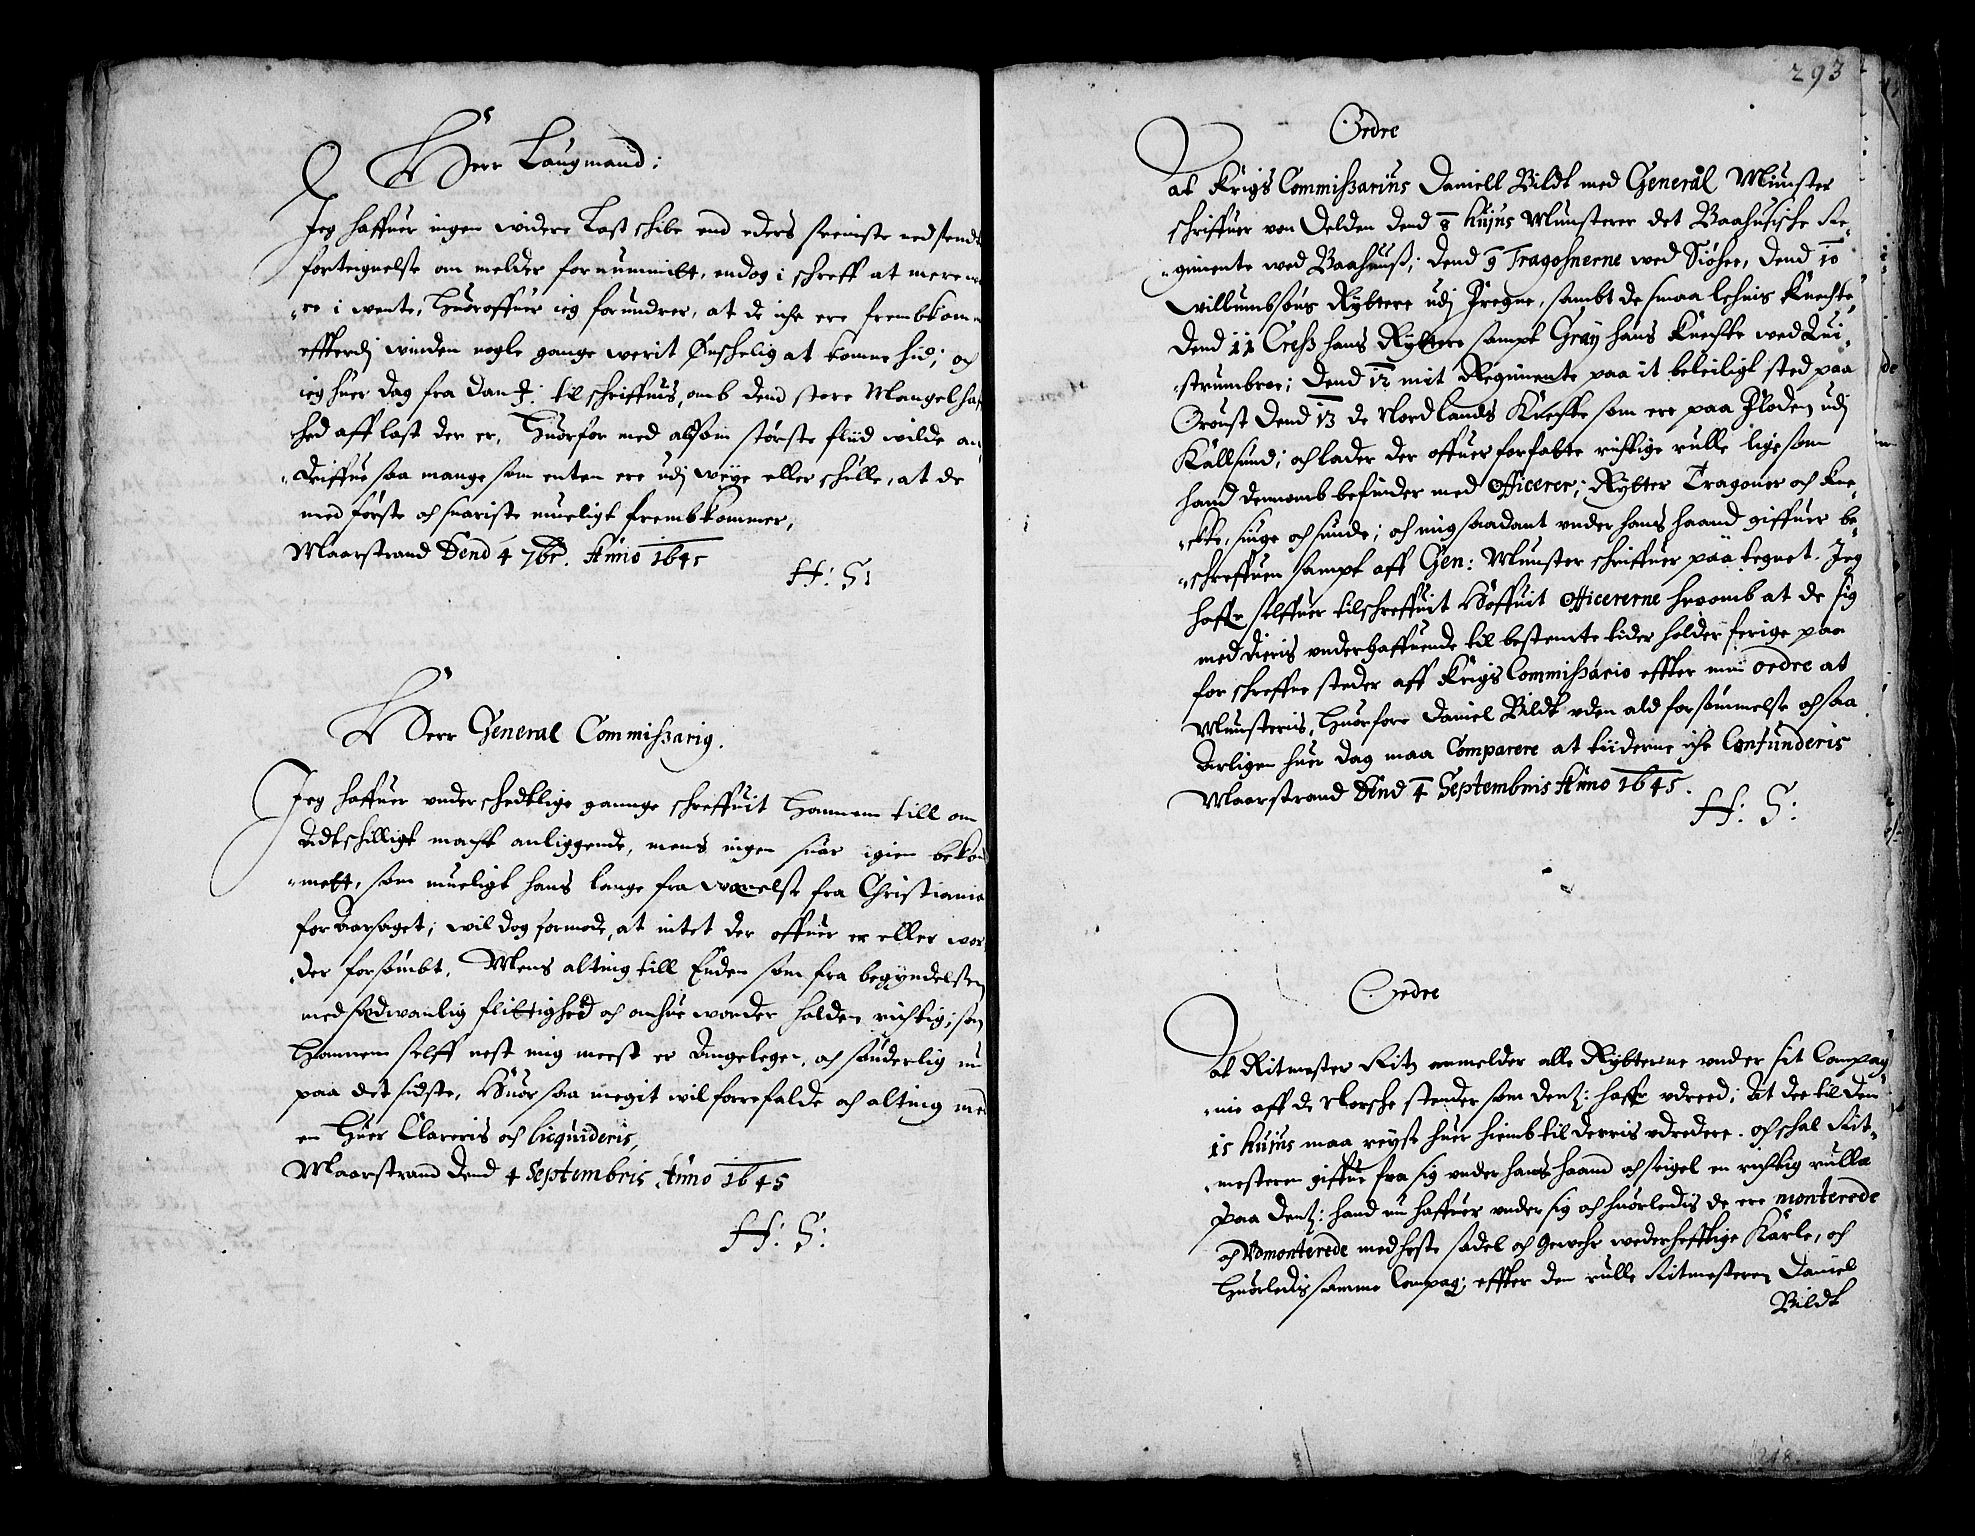 Herr Laugmand:
Jeg haffuer ingen widere Last schibe end eders seeniste nedsendt
fortegnelse om melder fornummitt, endog i schreff at mere wa
re i wente, Huoroffuer ieg forundrer, at de iche ere frembkomen
effterdj winden nogle gange werit Ønschelig at komme hid; och
ieg huer dag fra Dan: til schriffuis, omb dend store Mangelhaff
hed aff last der er, Huorfor med alsom største fliid wilde an
driffue saa mange som enten ere udj weye eller schulle, at de
med første och snariste mueligt frembkommer,
Maarstrand Dend 4 7br. Anno 1645
H: S:
Herr General Commissarig.
Jeg haffuer underschedtlige gannge schreffuit Hannem till om
Adtschilligt macht anliggende, mens ingen suar igien bekom
mett, som mueligt hans lange fra werelse fra Christiania
for Aarsaget; wil dog formode, at intet der offuer er eller wor
der forsømbt, Mens alting till Enden som fra begyndelsen
med sedwanlig flittighed och omhue worder holden richtig; som
Hannem selff nest mig meest er Angelegen, och sønderlig nu
paa det sidste, Huor saa megit wil forrefalde och alting med
en Huer Clareris och licquideris,
Maarstrand Dend 4 Septembris Anno 1645
H: S:
293
Ordre
At Krigs Commissarius Daniell Bildt med General Munster
schriffuer von Delden dend 8 hujus Munsterer det Baahusische Re
gimente wed Baahuuss; Dend 9 Tragohnerne wed Siøhee, Dend 10
Willumbsøns Rytterre udj Jregne, sambt de smaa lehnis Knechte
Dend 11 Creiss hans Ryttere sampt Gray hans Knechte wed Qui
strumbroe; Dend 12 mit Regimente paa it beleiligt sted paa
Oroust Dend 13 de Nordlands Knechte som ere paa Floden udj
Kallsund; och lader der offuer forfatte richtige rulle ligesom
hand dennomb befinder med Officerer; Rytter Dragoner och Kne
chte, siuge och sunde; och mig saadant under hans haand giffuer be
schreffuen sampt aff Gen: Munster schriffuer paategnet. Jeg
haffr selffuer tilschreffuit Høffuit Officererne hroomb at de sig
med dieris underhaffuende til bestemte tider holder ferige paa
for schreffne steder aff Krigs Commissario effter min ordre at
Munsteris, Huorfore Daniel Bildt uden ald forsømmelse och saa
Arligen huer dag maa Comparere at tiiderne iche Confunderis
Maarstrand Dend 4 Septembris Anno 1645.
H: S:
Ordre
At Ritmester Ritz anmelder alle Rytterne under sit Compag
nie aff de Norsche stender som dentz: haffr udreed; At dee til den
15 hujus maa reyse huer hiemb til derris udredere. och schal Rit
mesteren giffue fra sig under hans haand och seigel en richtig rulla
paa dentz: hand nu haffuer under sig och huorledis de ere monterede
och Vdmonterede med heste sadel och gewehr wederhefftige Karle, och
Huorledis samme Compag: effter den rulle Ritmesteren Daniel
Bildt
218.